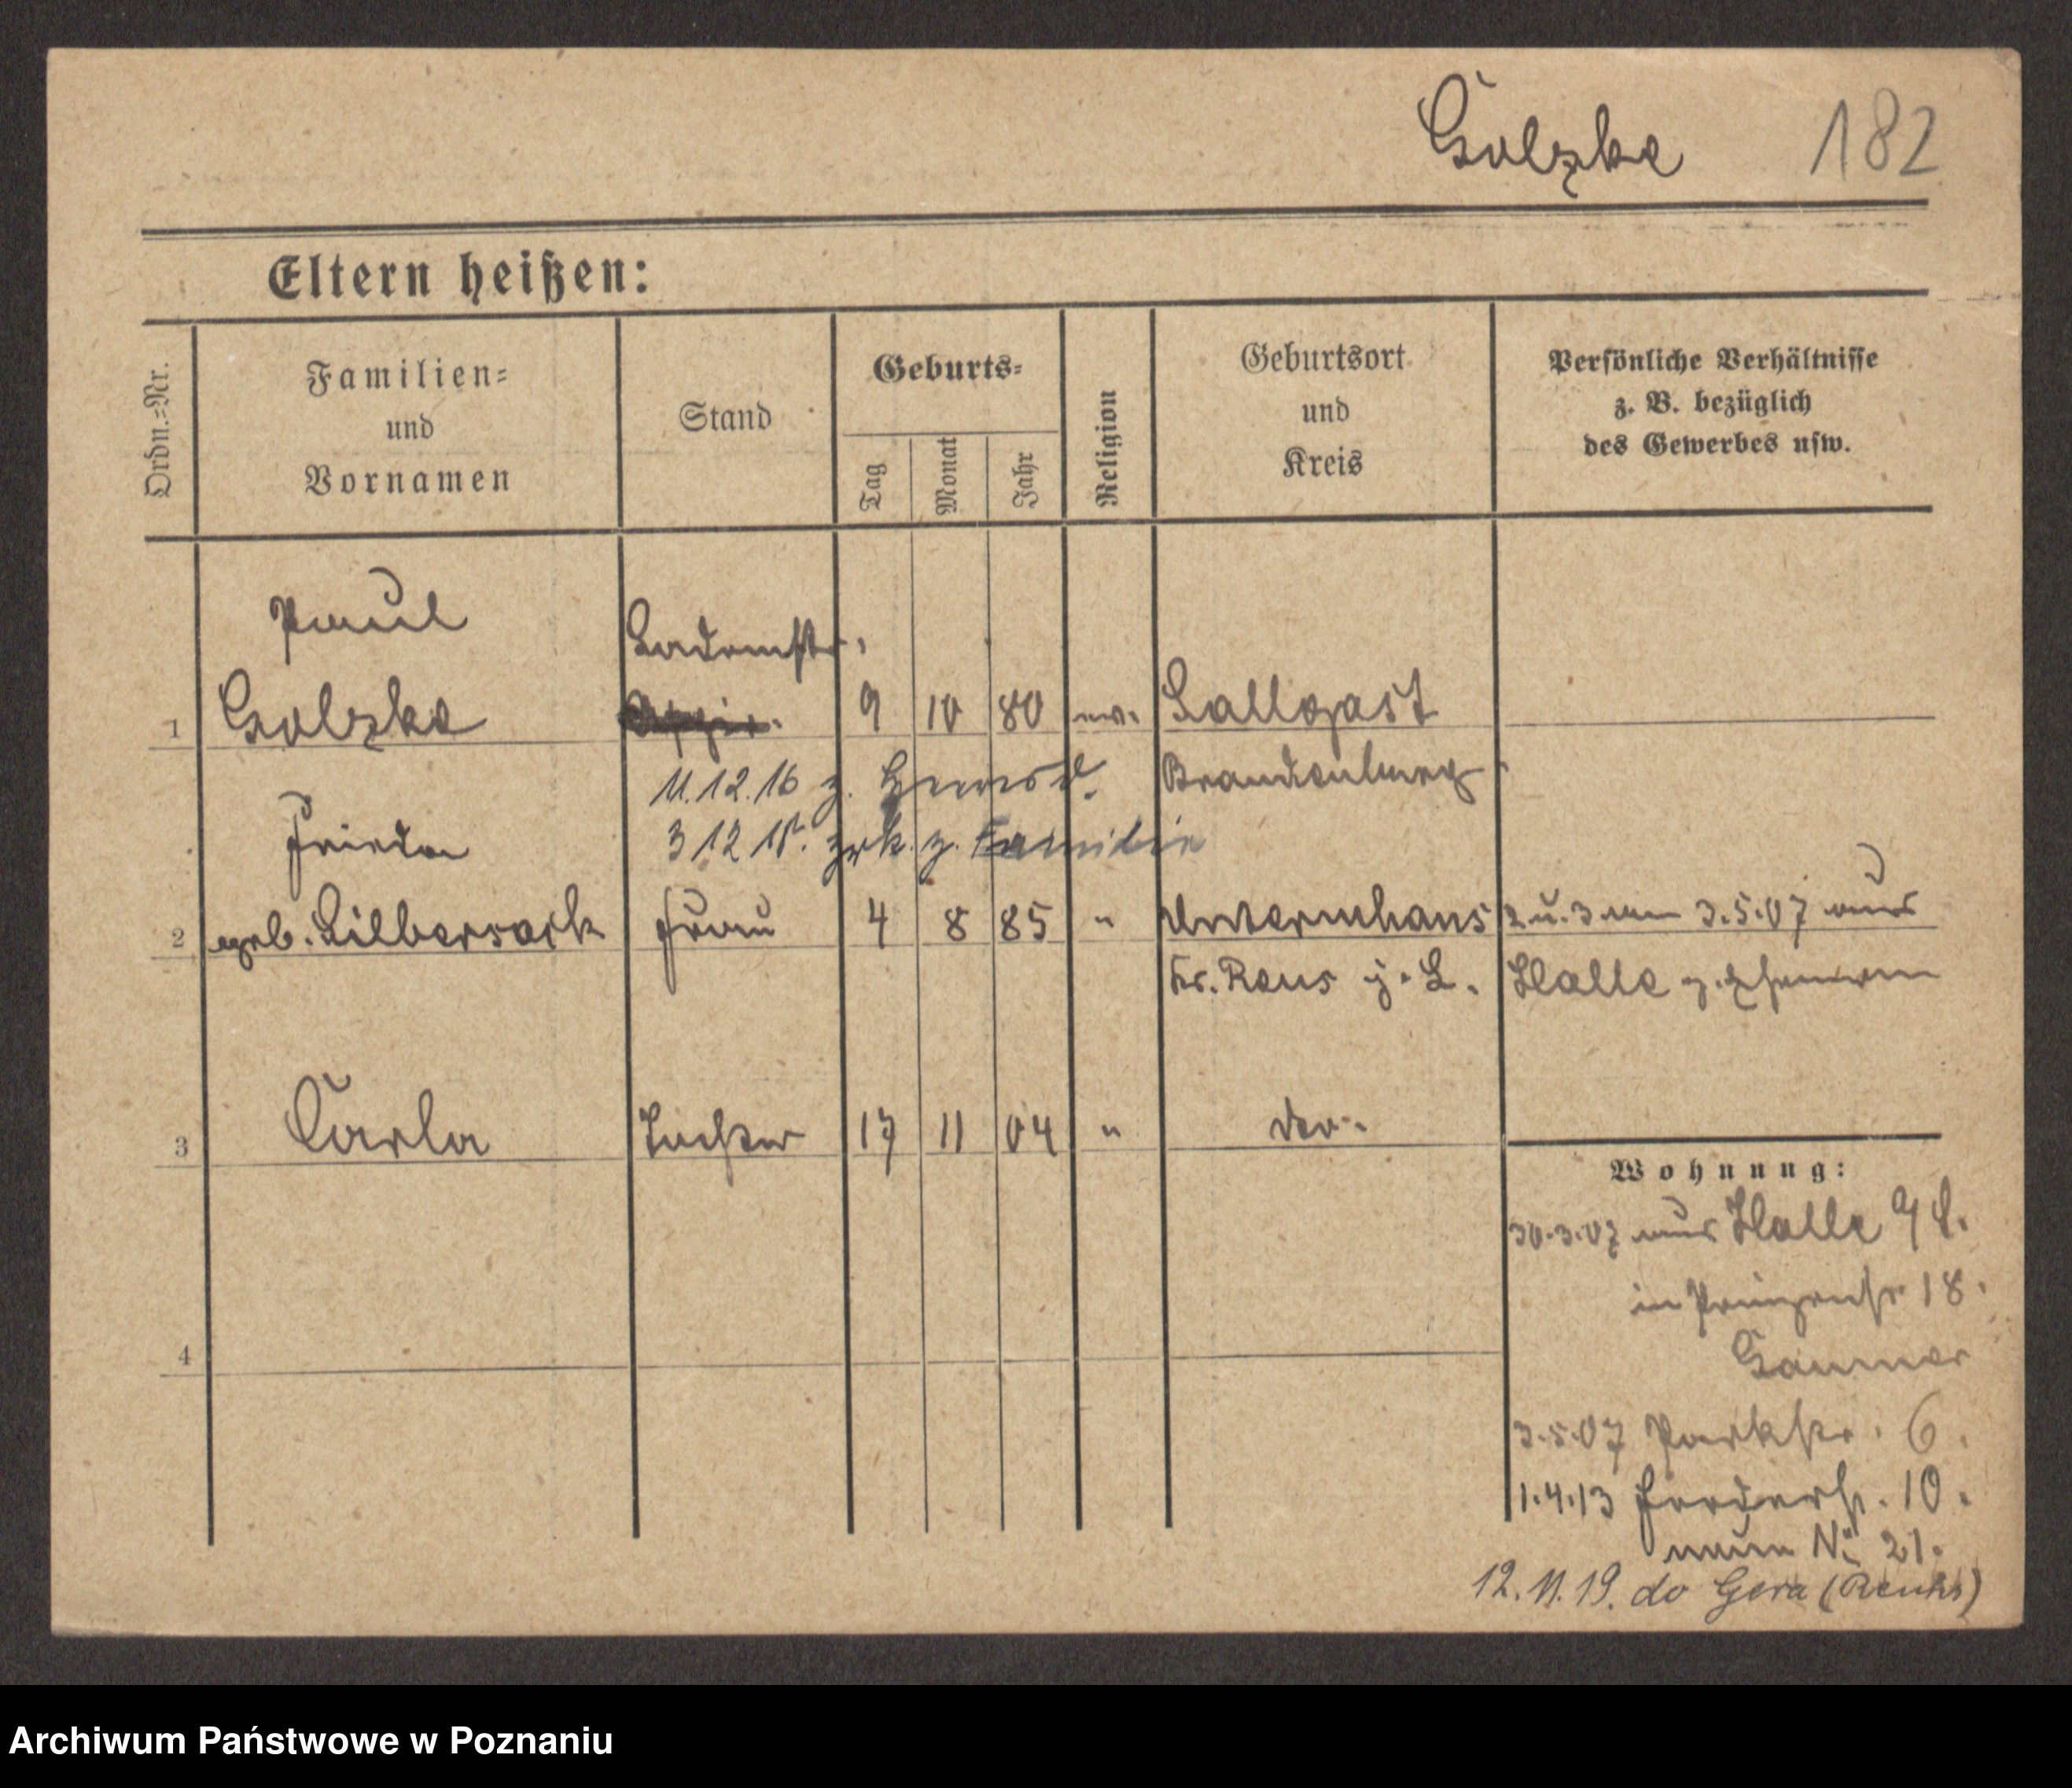 Golzke 182
Eltern heißen:
Ordn.=Nr.
Familien=
und
Vornamen
Stand
Geburts=
Tag
Monat
Jahr
Religion
Geburtsort
und
Kreis
Persönliche Verhältnisse
z. B. bezüglich
des Gewerbes usw.
Paul
Lademstr.
1 Golzke 9 10 80 ev. Sallgast
11.12.16 z. Heeresd. Brandenburg
Frieda
3 12 18. zrk. z. Familie
2 geb. Silbersack Frau 4 8 85 " Untermhaus 2 u. 3 am 3.5.07 aus
Kr. Reus j. L. Halle z. Ehemann
3 Carla Tochter 17 11 04 " do.
Wohnung:
30.3.07 aus Halle a/S.
in Prinzenstr 18.
3.5.07 Parkstr. 6.
4
1.4.13 10.
neue No 21.
12.11.19. do Gera (Reuhs)
Archiwum Państwowe w Poznaniu